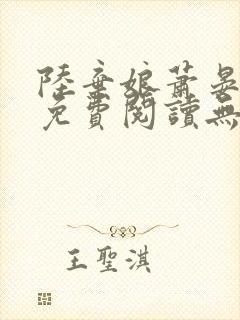 陸棄娘蕭晏
免費閱讀無
王聖淇